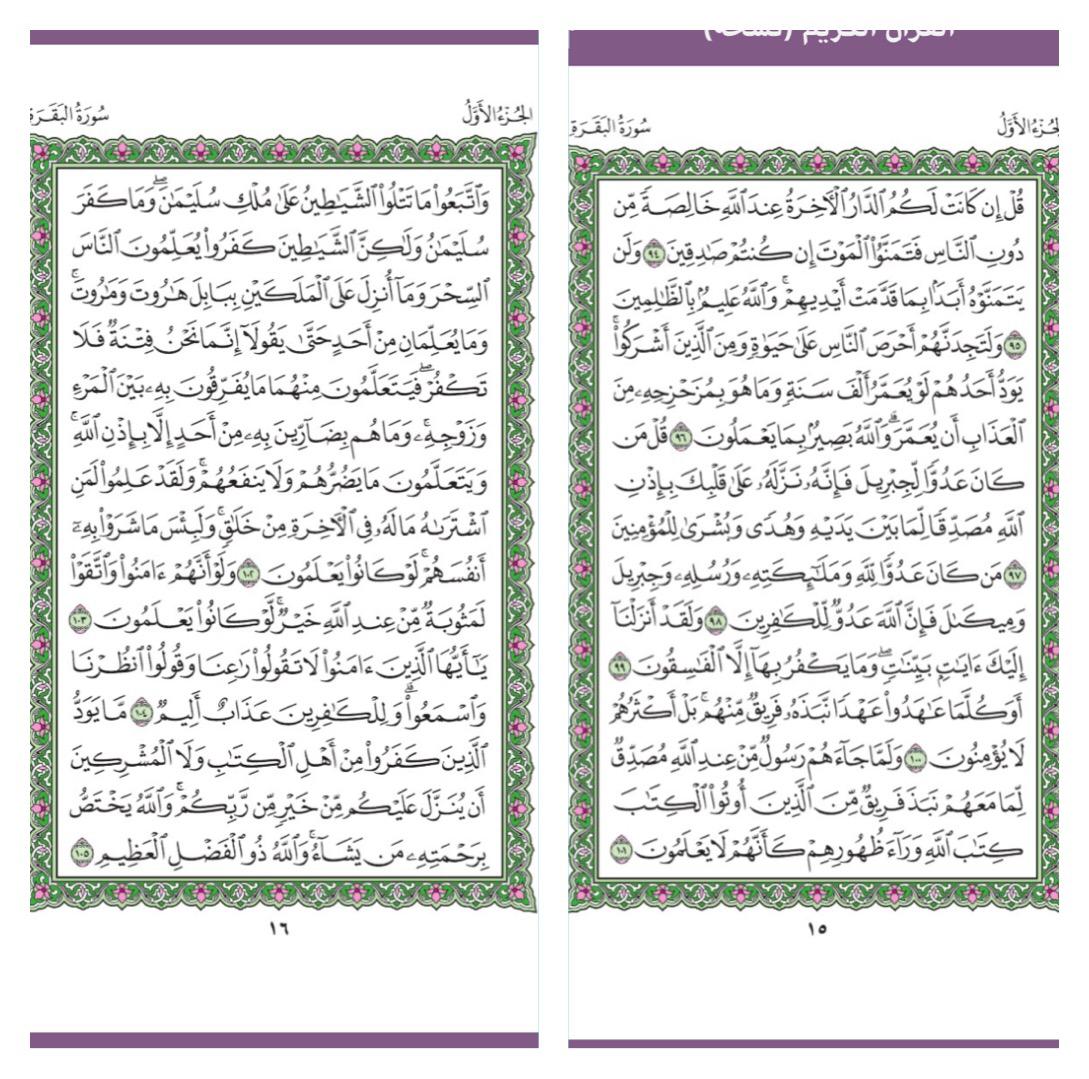 القرآن الكريم (نسخة)
الجُزْءُ الأَوَّلُ
سُورَةُ البَقَرَةِ
قُلْ إِن كَانَتْ لَكُمُ ٱلدَّارُ ٱلْأٓخِرَةُ عِندَ ٱللَّهِ خَالِصَةً مِّن
دُونِ ٱلنَّاسِ فَتَمَنَّوُا۟ ٱلْمَوْتَ إِن كُنتُمْ صَٰدِقِينَ ٩٤ وَلَن
يَتَمَنَّوْهُ أَبَدَۢا بِمَا قَدَّمَتْ أَيْدِيهِمْۚ وَٱللَّهُ عَلِيمُۢ بِٱلظَّٰلِمِينَ
٩٥ وَلَتَجِدَنَّهُمْ أَحْرَصَ ٱلنَّاسِ عَلَىٰ حَيَوٰةٍ وَمِنَ ٱلَّذِينَ أَشْرَكُوا۟ۚ
يَوَدُّ أَحَدُهُمْ لَوْ يُعَمَّرُ أَلْفَ سَنَةٍ وَمَا هُوَ بِمُزَحْزِحِهِۦ مِنَ
ٱلْعَذَابِ أَن يُعَمَّرَۗ وَٱللَّهُ بَصِيرُۢ بِمَا يَعْمَلُونَ ٩٦ قُلْ مَن
كَانَ عَدُوًّا لِّجِبْرِيلَ فَإِنَّهُۥ نَزَّلَهُۥ عَلَىٰ قَلْبِكَ بِإِذْنِ
ٱللَّهِ مُصَدِّقًا لِّمَا بَيْنَ يَدَيْهِ وَهُدًى وَبُشْرَىٰ لِلْمُؤْمِنِينَ
٩٧ مَن كَانَ عَدُوًّا لِّلَّهِ وَمَلَٰٓئِكَتِهِۦ وَرُسُلِهِۦ وَجِبْرِيلَ
وَمِيكَىٰلَ فَإِنَّ ٱللَّهَ عَدُوٌّ لِّلْكَٰفِرِينَ ٩٨ وَلَقَدْ أَنزَلْنَآ
إِلَيْكَ ءَايَٰتٍۭ بَيِّنَٰتٍۖ وَمَا يَكْفُرُ بِهَآ إِلَّا ٱلْفَٰسِقُونَ ٩٩
أَوَكُلَّمَا عَٰهَدُوا۟ عَهْدًا نَّبَذَهُۥ فَرِيقٌ مِّنْهُمۚ بَلْ أَكْثَرُهُمْ
لَا يُؤْمِنُونَ ١٠٠ وَلَمَّا جَآءَهُمْ رَسُولٌ مِّنْ عِندِ ٱللَّهِ مُصَدِّقٌ
لِّمَا مَعَهُمْ نَبَذَ فَرِيقٌ مِّنَ ٱلَّذِينَ أُوتُوا۟ ٱلْكِتَٰبَ
كِتَٰبَ ٱللَّهِ وَرَآءَ ظُهُورِهِمْ كَأَنَّهُمْ لَا يَعْلَمُونَ ١٠١
١٥
الجُزْءُ الأَوَّلُ
سُورَةُ البَقَرَةِ
وَٱتَّبَعُوا۟ مَا تَتْلُوا۟ ٱلشَّيَٰطِينُ عَلَىٰ مُلْكِ سُلَيْمَٰنَۖ وَمَا كَفَرَ
سُلَيْمَٰنُ وَلَٰكِنَّ ٱلشَّيَٰطِينَ كَفَرُوا۟ يُعَلِّمُونَ ٱلنَّاسَ
ٱلسِّحْرَ وَمَآ أُنزِلَ عَلَى ٱلْمَلَكَيْنِ بِبَابِلَ هَٰرُوتَ وَمَٰرُوتَۚ
وَمَا يُعَلِّمَانِ مِنْ أَحَدٍ حَتَّىٰ يَقُولَآ إِنَّمَا نَحْنُ فِتْنَةٌ فَلَا
تَكْفُرْۖ فَيَتَعَلَّمُونَ مِنْهُمَا مَا يُفَرِّقُونَ بِهِۦ بَيْنَ ٱلْمَرْءِ
وَزَوْجِهِۦۚ وَمَا هُم بِضَآرِّينَ بِهِۦ مِنْ أَحَدٍ إِلَّا بِإِذْنِ ٱللَّهِۚ
وَيَتَعَلَّمُونَ مَا يَضُرُّهُمْ وَلَا يَنفَعُهُمْۚ وَلَقَدْ عَلِمُوا۟ لَمَنِ
ٱشْتَرَىٰهُ مَا لَهُۥ فِى ٱلْأٓخِرَةِ مِنْ خَلَٰقٍۚ وَلَبِئْسَ مَا شَرَوْا۟ بِهِۦٓ
أَنفُسَهُمْۚ لَوْ كَانُوا۟ يَعْلَمُونَ ١٠٢ وَلَوْ أَنَّهُمْ ءَامَنُوا۟ وَٱتَّقَوْا۟
لَمَثُوبَةٌ مِّنْ عِندِ ٱللَّهِ خَيْرٌۚ لَّوْ كَانُوا۟ يَعْلَمُونَ ١٠٣
يَٰٓأَيُّهَا ٱلَّذِينَ ءَامَنُوا۟ لَا تَقُولُوا۟ رَٰعِنَا وَقُولُوا۟ ٱنظُرْنَا
وَٱسْمَعُوا۟ۗ وَلِلْكَٰفِرِينَ عَذَابٌ أَلِيمٌ ١٠٤ مَّا يَوَدُّ
ٱلَّذِينَ كَفَرُوا۟ مِنْ أَهْلِ ٱلْكِتَٰبِ وَلَا ٱلْمُشْرِكِينَ
أَن يُنَزَّلَ عَلَيْكُم مِّنْ خَيْرٍ مِّن رَّبِّكُمْۚ وَٱللَّهُ يَخْتَصُّ
بِرَحْمَتِهِۦ مَن يَشَآءُۚ وَٱللَّهُ ذُو ٱلْفَضْلِ ٱلْعَظِيمِ ١٠٥
١٦